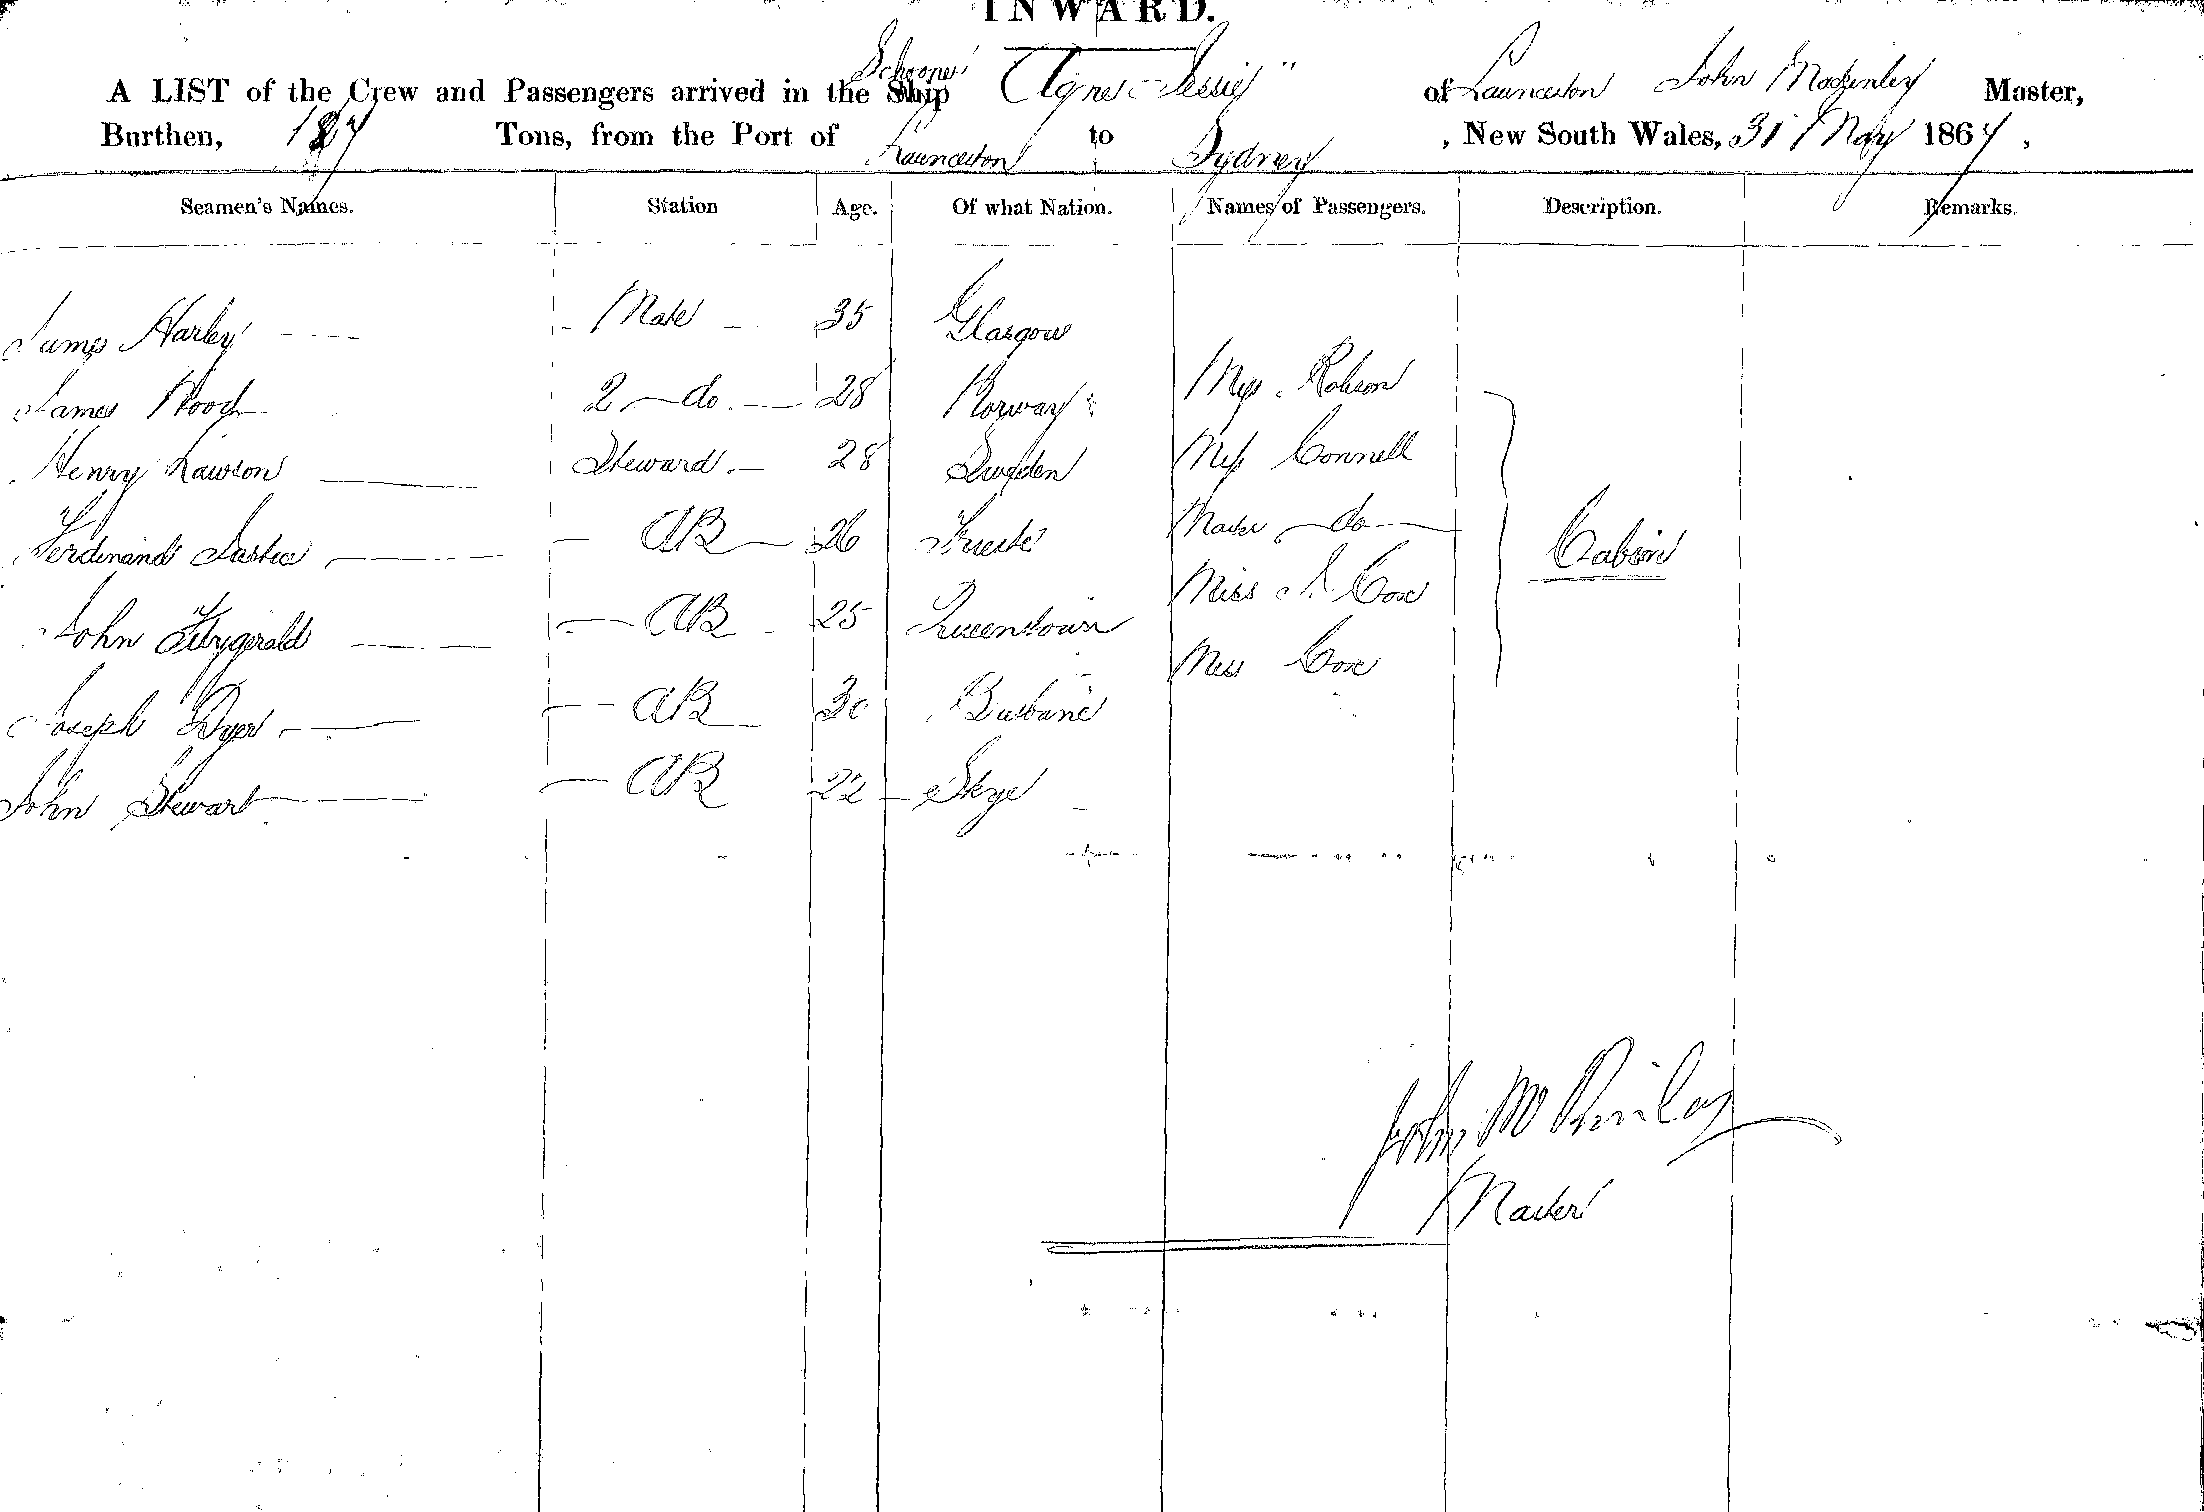 INWARD.
A LIST of the Crew and Passengers arrived in the Ship Schooner "Agnes Jessie" of Launceston John McKinley Master,
Burthen, 187 Tons, from the Port of Launceston to Sydney, New South Wales, 31 May 1867.
Seamen's Names. Station Age. Of what Nation. Names of Passengers. Description. Remarks.
James Harley Mate 35 Glasgow
James Wood 2 do. 28 Norway Mrs. Robson
Henry Lawson Steward. 28 Sweden Mrs Connell
Ferdinand AB 26 Trieste Master do Cabin
John Fitzgerald AB 25 Queenstown Miss Cox
Joseph Dyer AB 30 Brisbane Miss Cox
John Stewart AB 22 Skye
John McKinlay
Master